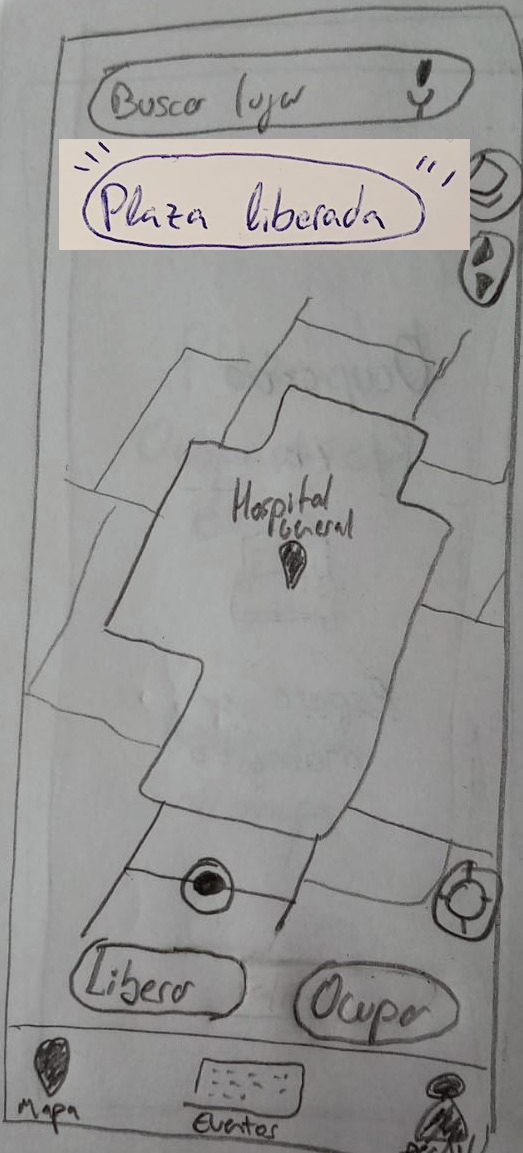 Buscar lugar
Plaza liberada
Hospital
General
Liberar
Ocupar
Mapa
Eventos
Perfil